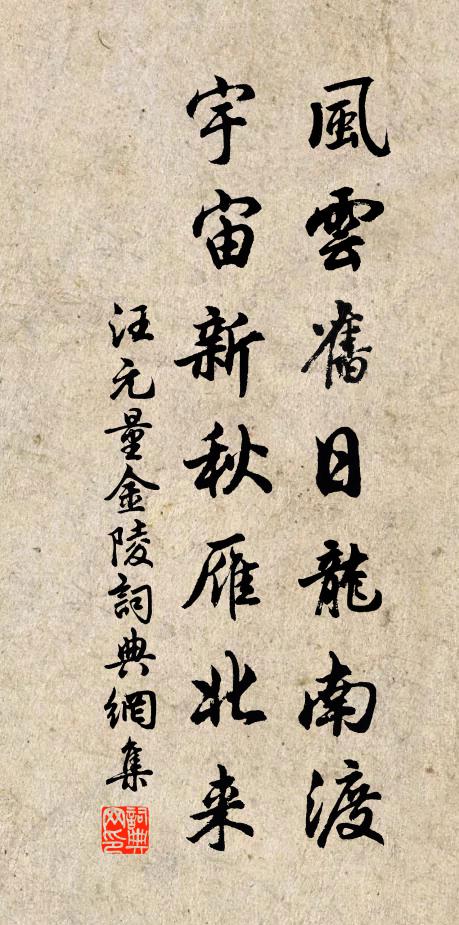 風雲舊日龍南渡
宇宙新秋雁北来
汪元量金陵詞典網集
詞典网印